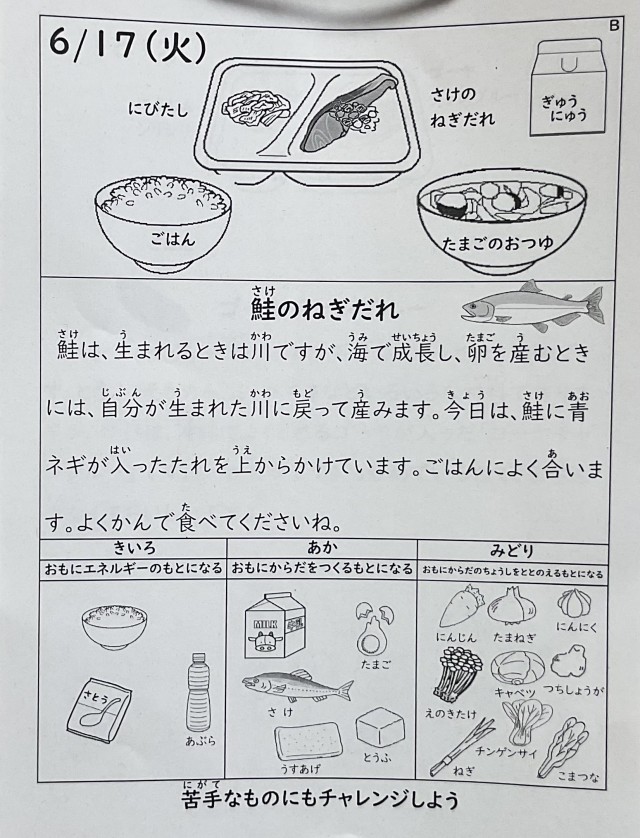 B
6/17(火)
にびたし
さけの
ねぎだれ
ぎゅう
にゅう
ごはん
たまごのおつゆ
鮭のねぎだれ
鮭は、生まれるときは川ですが、海で成長し、卵を産むとき
には、自分が生まれた川に戻って産みます。今日は、鮭に青
ネギが入ったたれを上からかけています。ごはんによく合いま
す。よくかんで食べてくださいね。
きいろ
あか
みどり
おもにエネルギーのもとになる
おもにからだをつくるもとになる
おもにからだのちょうしをととのえるもとになる
さとう
あぶら
MILK
たまご
さけ
うすあげ
とうふ
にんじん
たまねぎ
にんにく
えのきたけ
キャベツ
つちしょうが
ねぎ
チンゲンサイ
こまつな
苦手なものにもチャレンジしよう